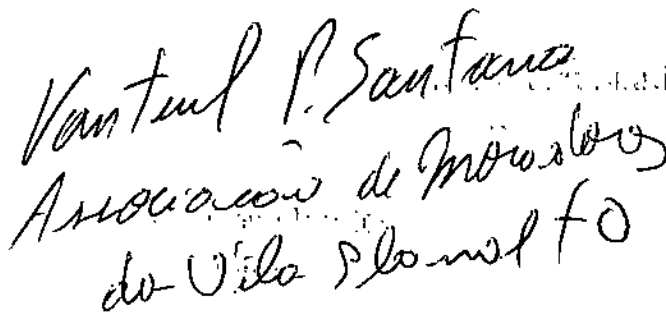 Vanteul P. Santana
Associação de Moradores
da Vila Planalto